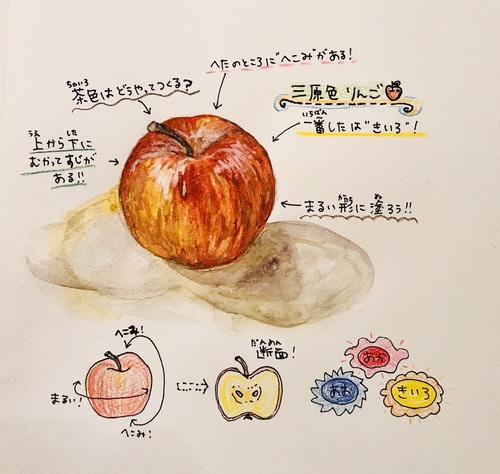 へたのところに"へこみ"がある!
ちゃいろ
茶色はどうやってつくる?
三原色りんご
いちばん
一番したは"きいろ"!
うえ した
上から下に
むかってすじが
ある!!
かたち ぬ
まるい形に塗ろう!!
へこみ!
まるい!
へこみ!
だんめん
断面!
あか
あお
きいろ